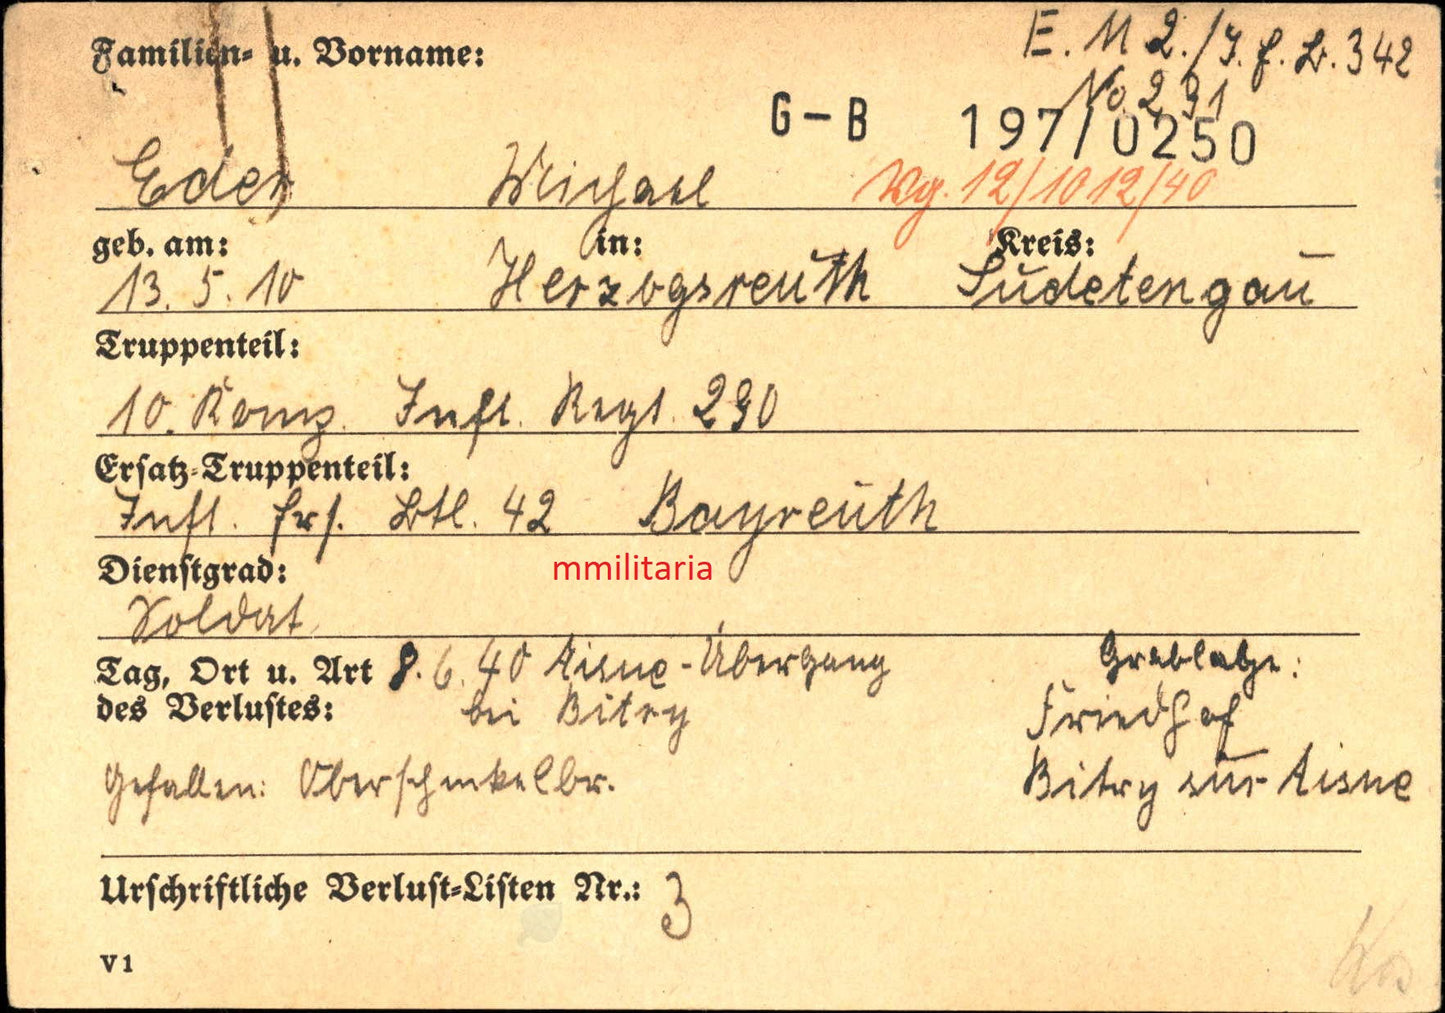 Familien- u. Vorname:
E. M 2./J. f. B. 342
No. 291
G-B 197/0250
Eder Michael Vg. 12/10 12/40
geb. am: in: Kreis:
13. 5. 10 Herzogsreuth Sudetengau
Truppenteil:
10. Komp. Inft. Regt. 290
Ersatz-Truppenteil:
Inft. Ers. Btl. 42 Bayreuth
Dienstgrad:
mmilitaria
Soldat
Tag, Ort u. Art 8. 6. 40 Aisne-Übergang Grablage:
des Verlustes: bei Bitry Friedhof
Gefallen: Oberschenkelbr. Bitry sur Aisne
Urschriftliche Verlust-Listen Nr.: 3
V1